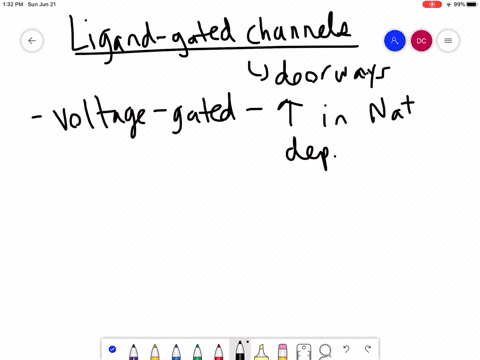 1:32 PM Sun Jun 21
99%
DC
Ligand-gated channels
↳ doorways
- voltage-gated - ↑ in Na+
dep.